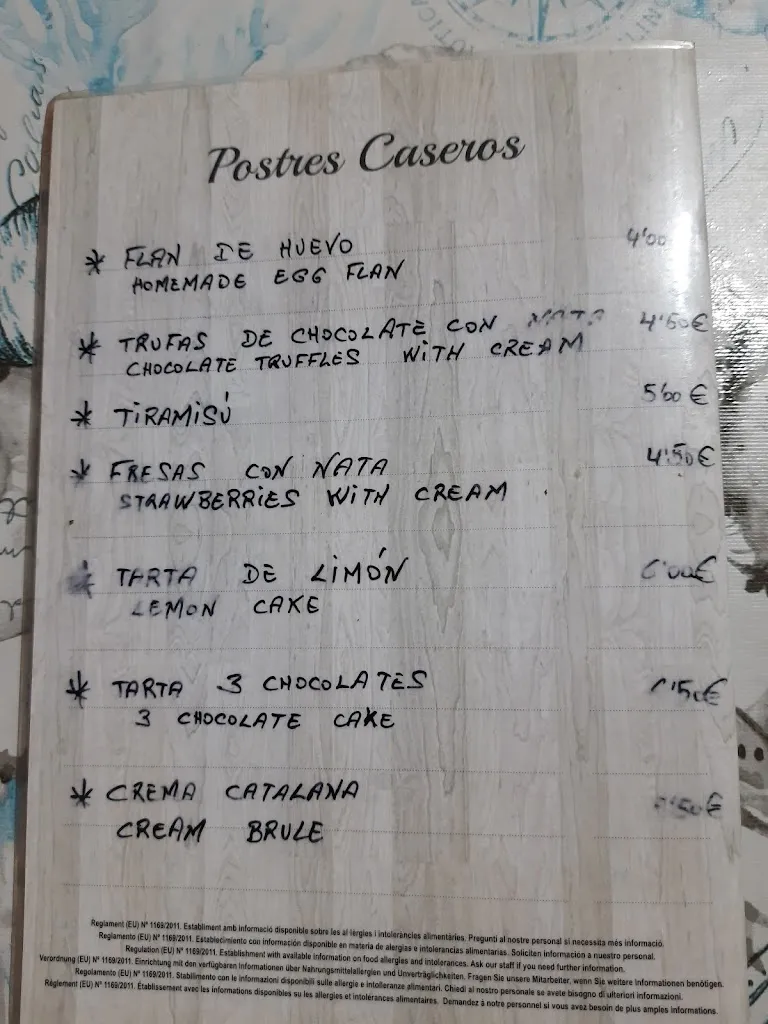 Postres Caseros
* FLAN DE HUEVO 4'00
HOMEMADE EGG FLAN
* TRUFAS DE CHOCOLATE CON NATA 4'50€
CHOCOLATE TRUFFLES WITH CREAM
* TIRAMISÚ
* FRESAS CON NATA 4'50€
STRAWBERRIES WITH CREAM
* TARTA DE LIMÓN
LEMON CAKE
* TARTA 3 CHOCOLATES
3 CHOCOLATE CAKE
* CREMA CATALANA
CREAM BRULE
Reglament (EU) Nº 1169/2011. Establiment amb informació disponible sobre les al·lèrgies i intolerancies alimentàries. Pregunti al nostre personal si necessita més informació.
Reglamento (EU) Nº 1169/2011. Establecimiento con información disponible en materia de alergias e intolerancias alimentarias. Soliciten información a nuestro personal.
Regulation (EU) Nº 1169/2011. Establishment with available information on food allergies and intolerances. Ask our staff if you need further information.
Verordnung (EU) Nº 1169/2011. Einrichtung mit den verfügbaren Informationen über Nahrungsmittelallergien und Unverträglichkeiten. Fragen Sie unsere Mitarbeiter, wenn Sie weitere Informationen benötigen.
Regolamento (EU) Nº 1169/2011. Stabilimento con le informazioni disponibili sulle allergie e intolleranze alimentari. Chiedi al nostro personale se avete bisogno di ulteriori informazioni.
Règlement (EU) Nº 1169/2011. Établissement avec les informations disponibles su les allergies et intolérances alimentaires. Demandez à notre personnel si vous avez besoin de plus amples informations.